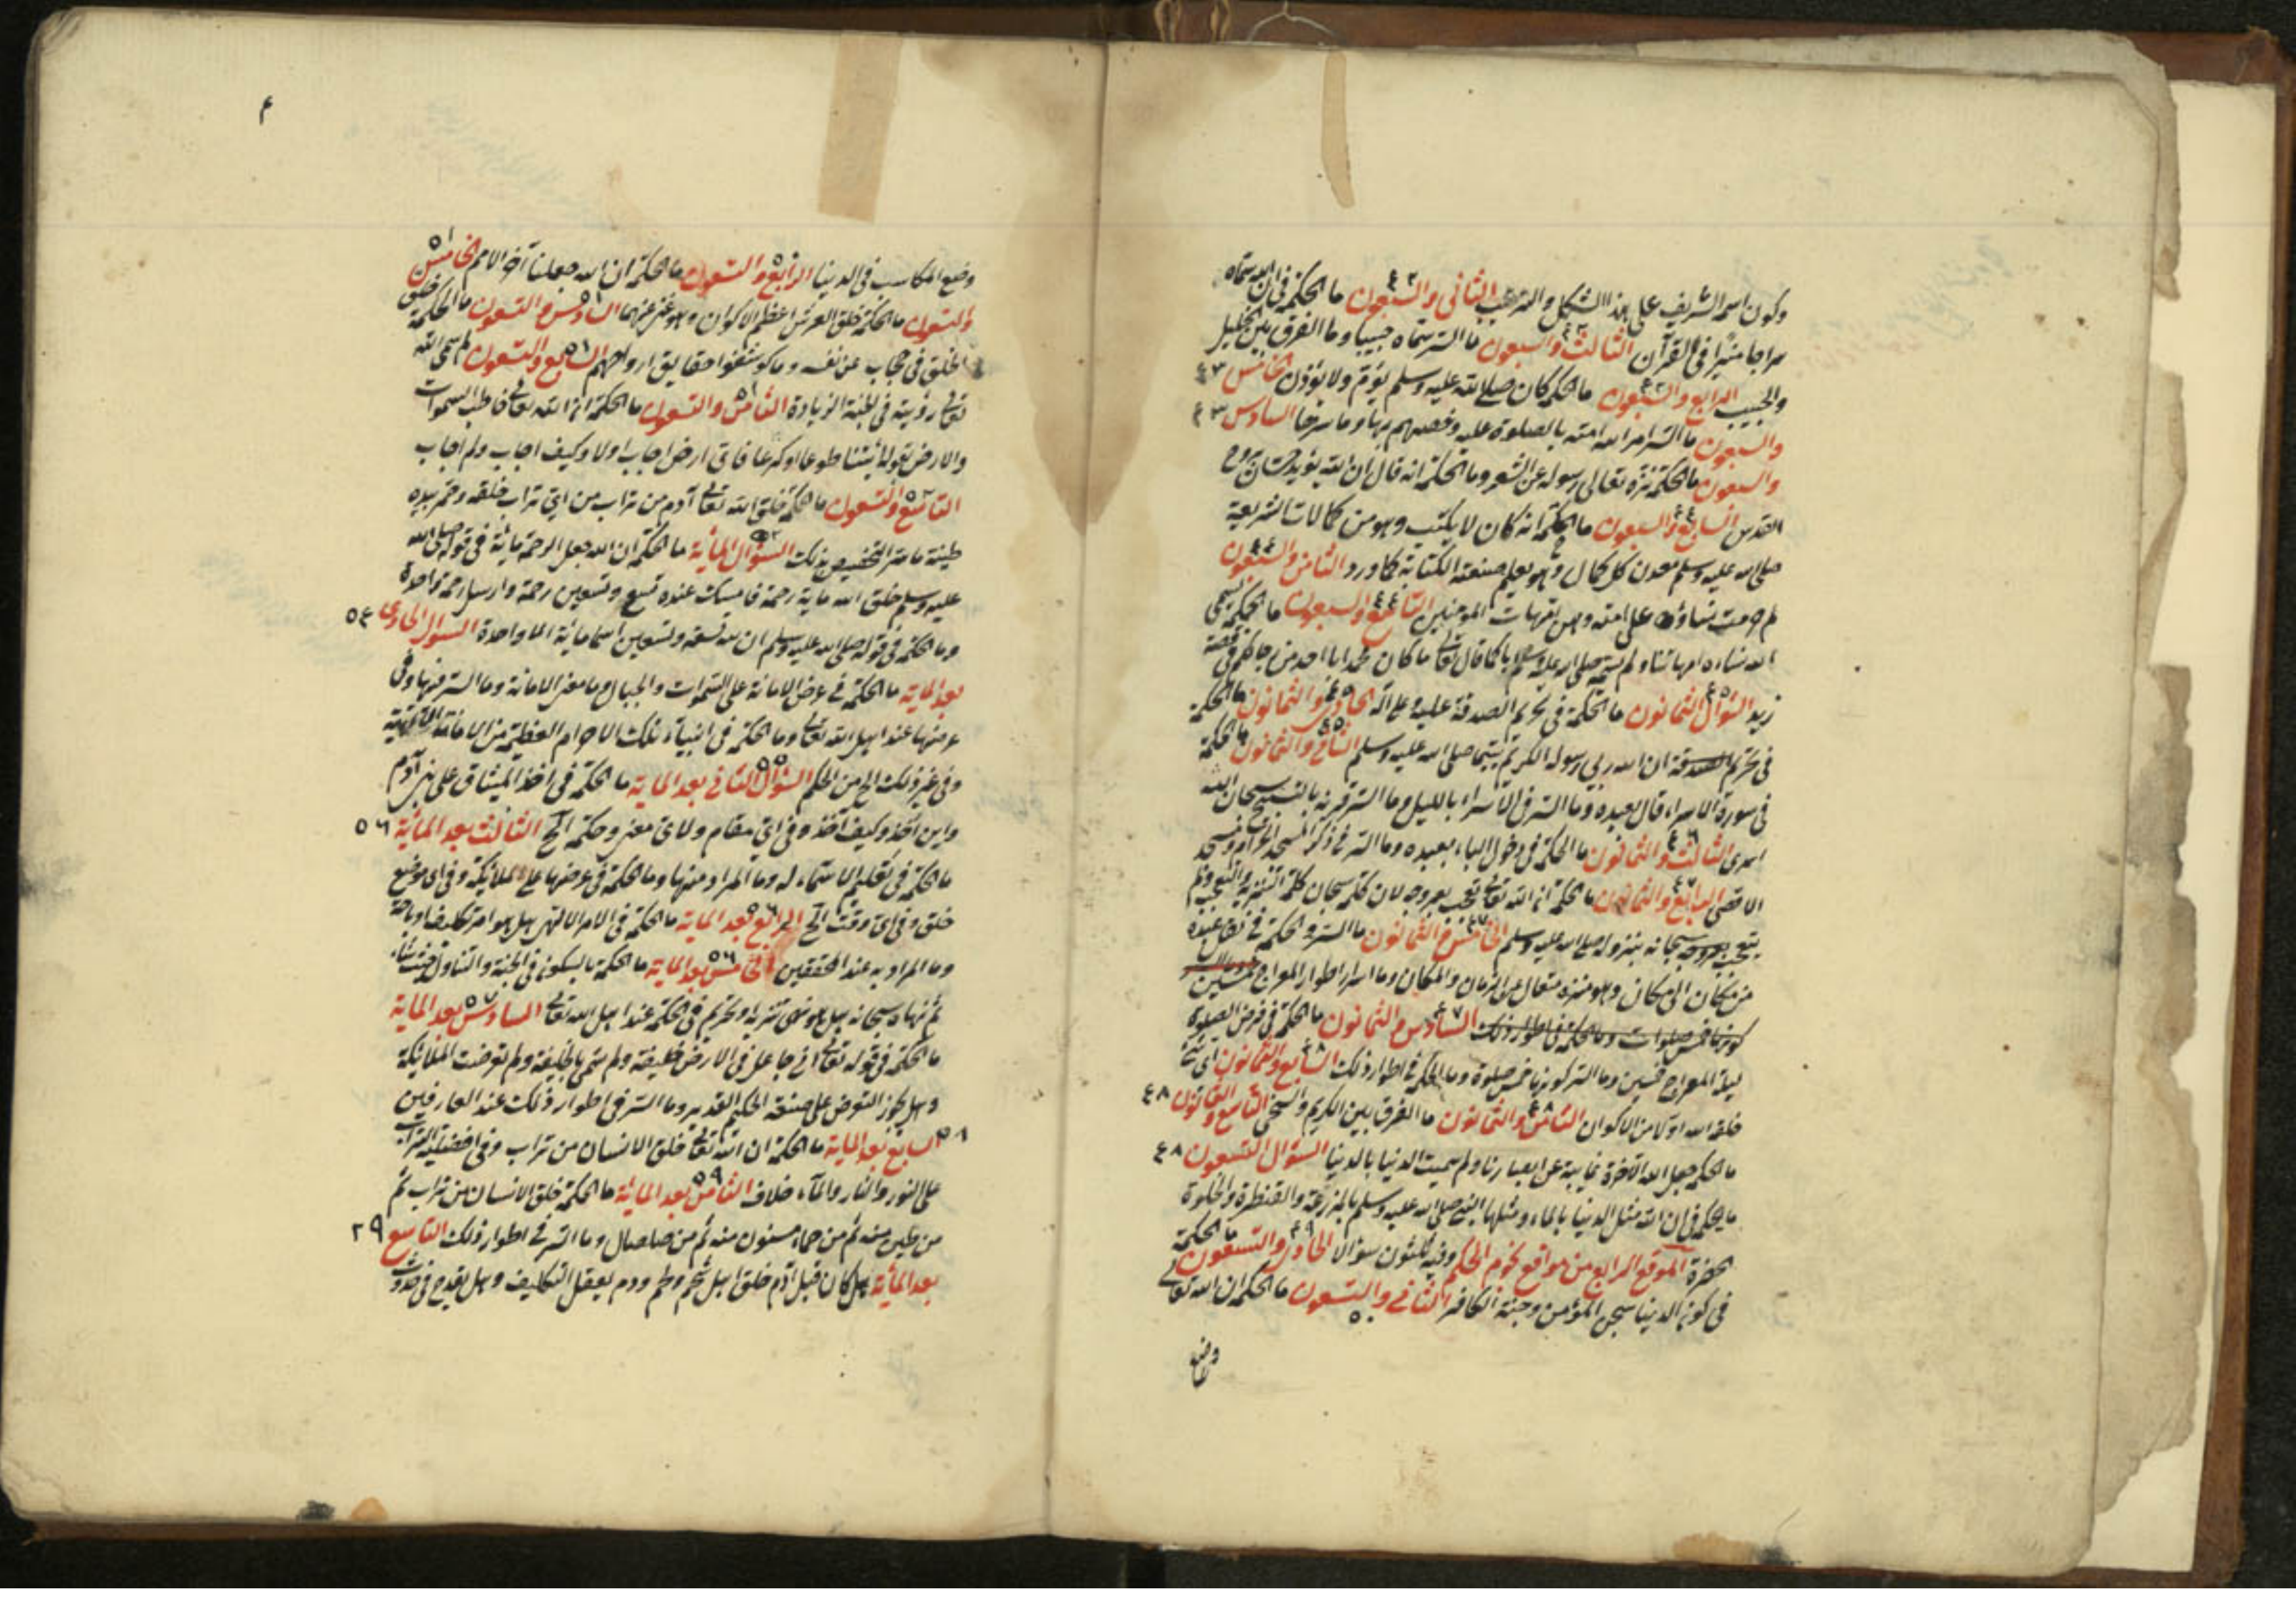 وكون اسمه الشريف على هذا الشكل والترتيب الثاني والسبعون ما الحكمة في ان الله سماه
سراجا منيرا في القرآن الثالث والسبعون ما السر سماه حبيبا وما الفرق بين الخليل
والحبيب الرابع والسبعون ما الحكم كان صلى الله عليه وسلم يؤم ولا يؤذن الخامس ٤٣
والسبعون ما السر امر الله امته بالصلوة عليه وخصهم بها وما سرها السادس ٤٣
والسبعون ما الحكمة نزه تعالى رسوله عن الشعر وما الحكمة انه قال ان الله يؤيد حسان بروح
القدس السابع والسبعون ما الحكمة انه كان لا يكتب وهو من كمالات الشريعة
صلى الله عليه وسلم معدن كل كمال وهو يعلم صنعة الكتابة كما ورد الثامن والسبعون
لم حرمت نساؤه على امته وهن امهات المؤمنين التاسع والسبعون ما الحكمة سمى
الله نساءه امهاتنا ولم يسمه صلى الله عليه وسلم ابا كما قال تعالى ما كان محمد ابا احد من رجالكم في قصة
زيد السؤال الثمانون ما الحكمة في تحريم الصدقة عليه وعلى آله الحادي والثمانون ما الحكمة
في تحريم الصدقة ان الله ربى رسوله الكريم يتيما صلى الله عليه وسلم الثاني والثمانون ما الحكمة
في سورة الاسراء قال بعبده وما السر في الاسراء بالليل وما السر قرينه بالتسبيح سبحان الله
اسرى الثالث والثمانون ما الحكمة في دخول الباء بعبده وما السر في ذكر المسجد الحرام ومسجد
الاقصى الرابع والثمانون ما الحكمة ان الله تعالى تعجب بعروجه لان كلمة سبحان كلمة التنزيه والتعجب ولم
يتعجب سبحانه بنزوله صلى الله عليه وسلم الخامس والثمانون ما السر والحكمة في نقل عبده
من مكان الى مكان وهو منزه متعال عن الزمان والمكان وما اسرار اطوار المعراج
كونها خمس صلوات وما الحكمة في اطوار ذلك السادس والثمانون ما الحكمة في فرض الصلوة
ليلة المعراج خمسين وما السر كونها خمس صلوة وما الحكمة في اطوار ذلك السابع والثمانون اي شيء
خلقه الله اولا من الاكوان الثامن والثمانون ما الفرق بين الكريم والسخي التاسع والثمانون ٤٨
ما الحكمة جعل الله الآخرة غايبة عن ابصارنا ولم سميت الدنيا بالدنيا السؤال التسعون ٤٨
ما الحكمة في ان الله مثل الدنيا بالماء ومثلها النبي صلى الله عليه وسلم بالمزرعة والقنطرة والحلوة
الخضرة الموقع الرابع من مواقع نجوم الحكم وفيه ثلثون سؤالا الحادي والتسعون ما الحكمة
في كون الدنيا سجن المؤمن وجنة الكافر الثاني والتسعون ما الحكمة ان الله تعالى
٥٠
وضع
٤
وضع المكاسب في الدنيا الرابع والتسعون ما الحكمة ان الله جعلنا آخر الامم الخامس
والتسعون ما الحكمة خلق العرش اعظم الاكوان وهو غني عنها السادس والتسعون ما الحكمة خلق
الخلق في حجاب عن نفسه وما كوشفوا حقايق ارواحهم السابع والتسعون لم سمى الله
تعالى رؤيته في الجنة الزيادة الثامن والتسعون ما الحكمة ان الله تعالى خاطب السموات
والارض بقوله ائتنا طوعا او كرها فاي ارض اجاب اولا وكيف اجاب ولم اجاب
التاسع والتسعون ما الحكمة خلق الله تعالى آدم من تراب من اي تراب خلقه وخمر بيده
طينه ما سر التخصيص بذلك السؤال المأية ما الحكمة ان الله جعل الرحمة مأية في قوله صلى الله
عليه وسلم خلق الله ماية رحمة فامسك عنده تسع وتسعين رحمة وارسل رحمة واحدة
وما الحكمة في قوله صلى الله عليه وسلم ان لله تسعة وتسعين اسما مائة الا واحدة السؤال الحادي ٥٤
بعد الماية ما الحكمة في عرض الامانة على السموات والجبال وما معنى الامانة وما السر فيها وفي
عرضها عند اهل الله تعالى وما الحكمة في انباء تلك الاجرام العظيمة من الامانة
وفي غير ذلك الخ من الحكم السؤال الثاني بعد الماية ما الحكمة في اخذ الميثاق على بني آدم
واين اخذ وكيف اخذ وفي اي مقام ولاي معنى وحكمة الخ الثالث بعد المائة ٥٦
ما الحكمة في تعليم الاسماء له وما المراد منها وما الحكمة في عرضها على الملائكة وفي اي موضع
خلق وفي اي وقت الخ الرابع بعد الماية ما الحكمة في الامر الالهي هل هو امر تكليف او اباحة
وما المراد به عند المحققين الخامس بعد الماية ما الحكمة بالسكون في الجنة والتناول حيث شاء
ثم نهاه سبحانه هل هو نهي تنزيه او تحريم في الحكمة عند اهل الله تعالى السادس بعد الماية
ما الحكمة في قوله تعالى اني جاعل في الارض خليفة ولم سمي بالخليفة ولم تعرضت الملائكة
وهل يجوز التعرض على صنعة الحكيم القدير وما السر في اطوار ذلك عند العارفين
٥٨ السابع بعد الماية ما الحكمة ان الله تعالى خلق الانسان من تراب وفي افضلية التراب
على النور والنار والماء خلاف الثامن بعد المائة ما الحكمة خلق الانسان من تراب ثم
من طين منه ثم من حماء مسنون منه ثم من صلصال وما السر في اطوار ذلك التاسع ٢٩
بعد المأية هل كان قبل آدم خلق اهل شحم ولحم ودم يعقل التكليف وهل يقدح في حدوث